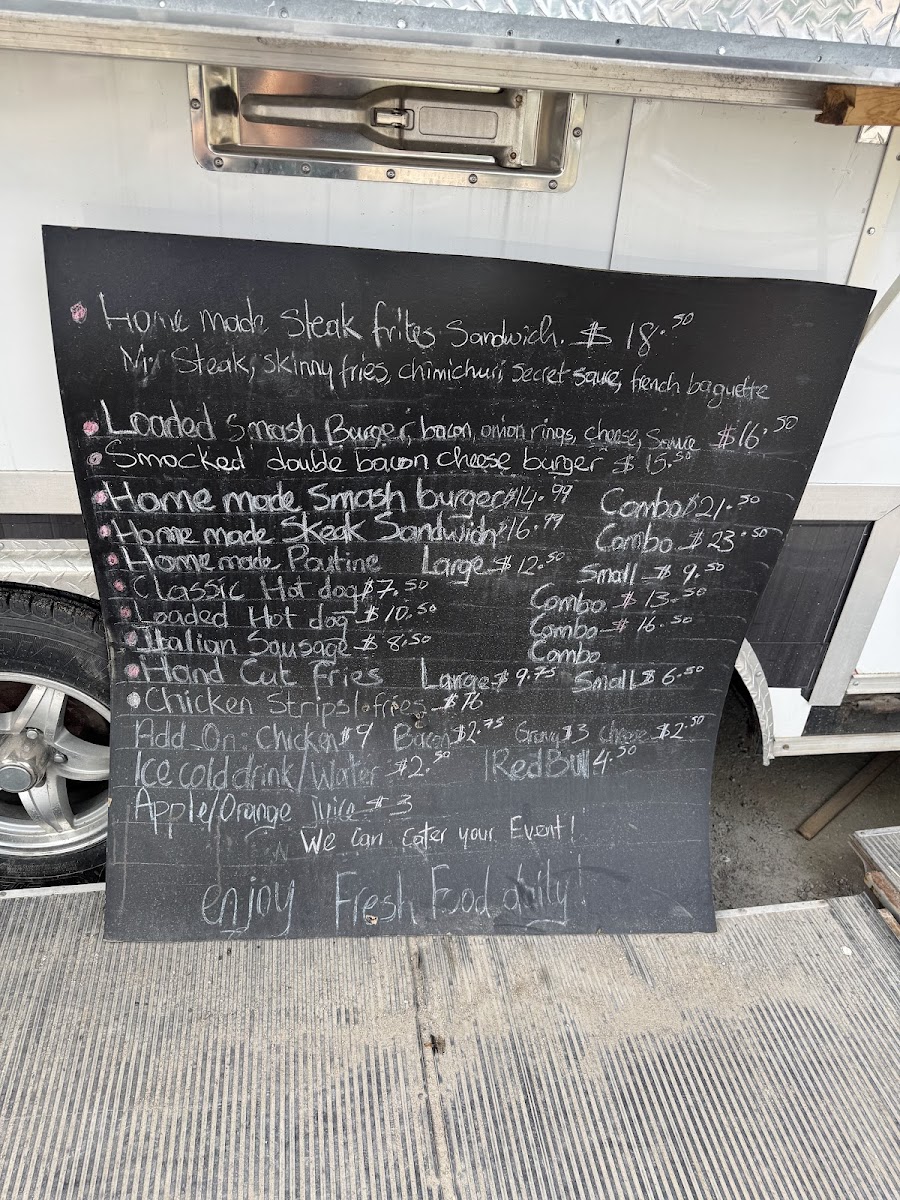 Home made Steak frites Sandwich. $ 18.50
Steak, skinny fries, chimichuri, secret sauce, french baguette
Loaded Smash Burger, bacon, onion rings, cheese, Sauce $16.50
Smocked double bacon cheese burger $ 15.50
Home made Smash burger $14.99 Combo $21.50
Home made Skeak Sandwich $16.99 Combo $ 23.50
Home made Poutine Large $ 12.50 Small $ 9.50
Classic Hot dog $7.50 Combo $ 13.50
Loaded Hot dog $ 10.50 Combo $ 16.50
Italian Sausage $ 8.50 Combo
Hand Cut Fries Large $ 9.75 Small $ 6.50
Chicken Strips/fries $16
Add On: Chicken $9 Bacon $2.75 Gravy $3 Cheese $2.50
Ice cold drink/Water $2.50 Red Bull 4.50
Apple/Orange Juice $3
We can cater your Event!
enjoy Fresh Food daily!